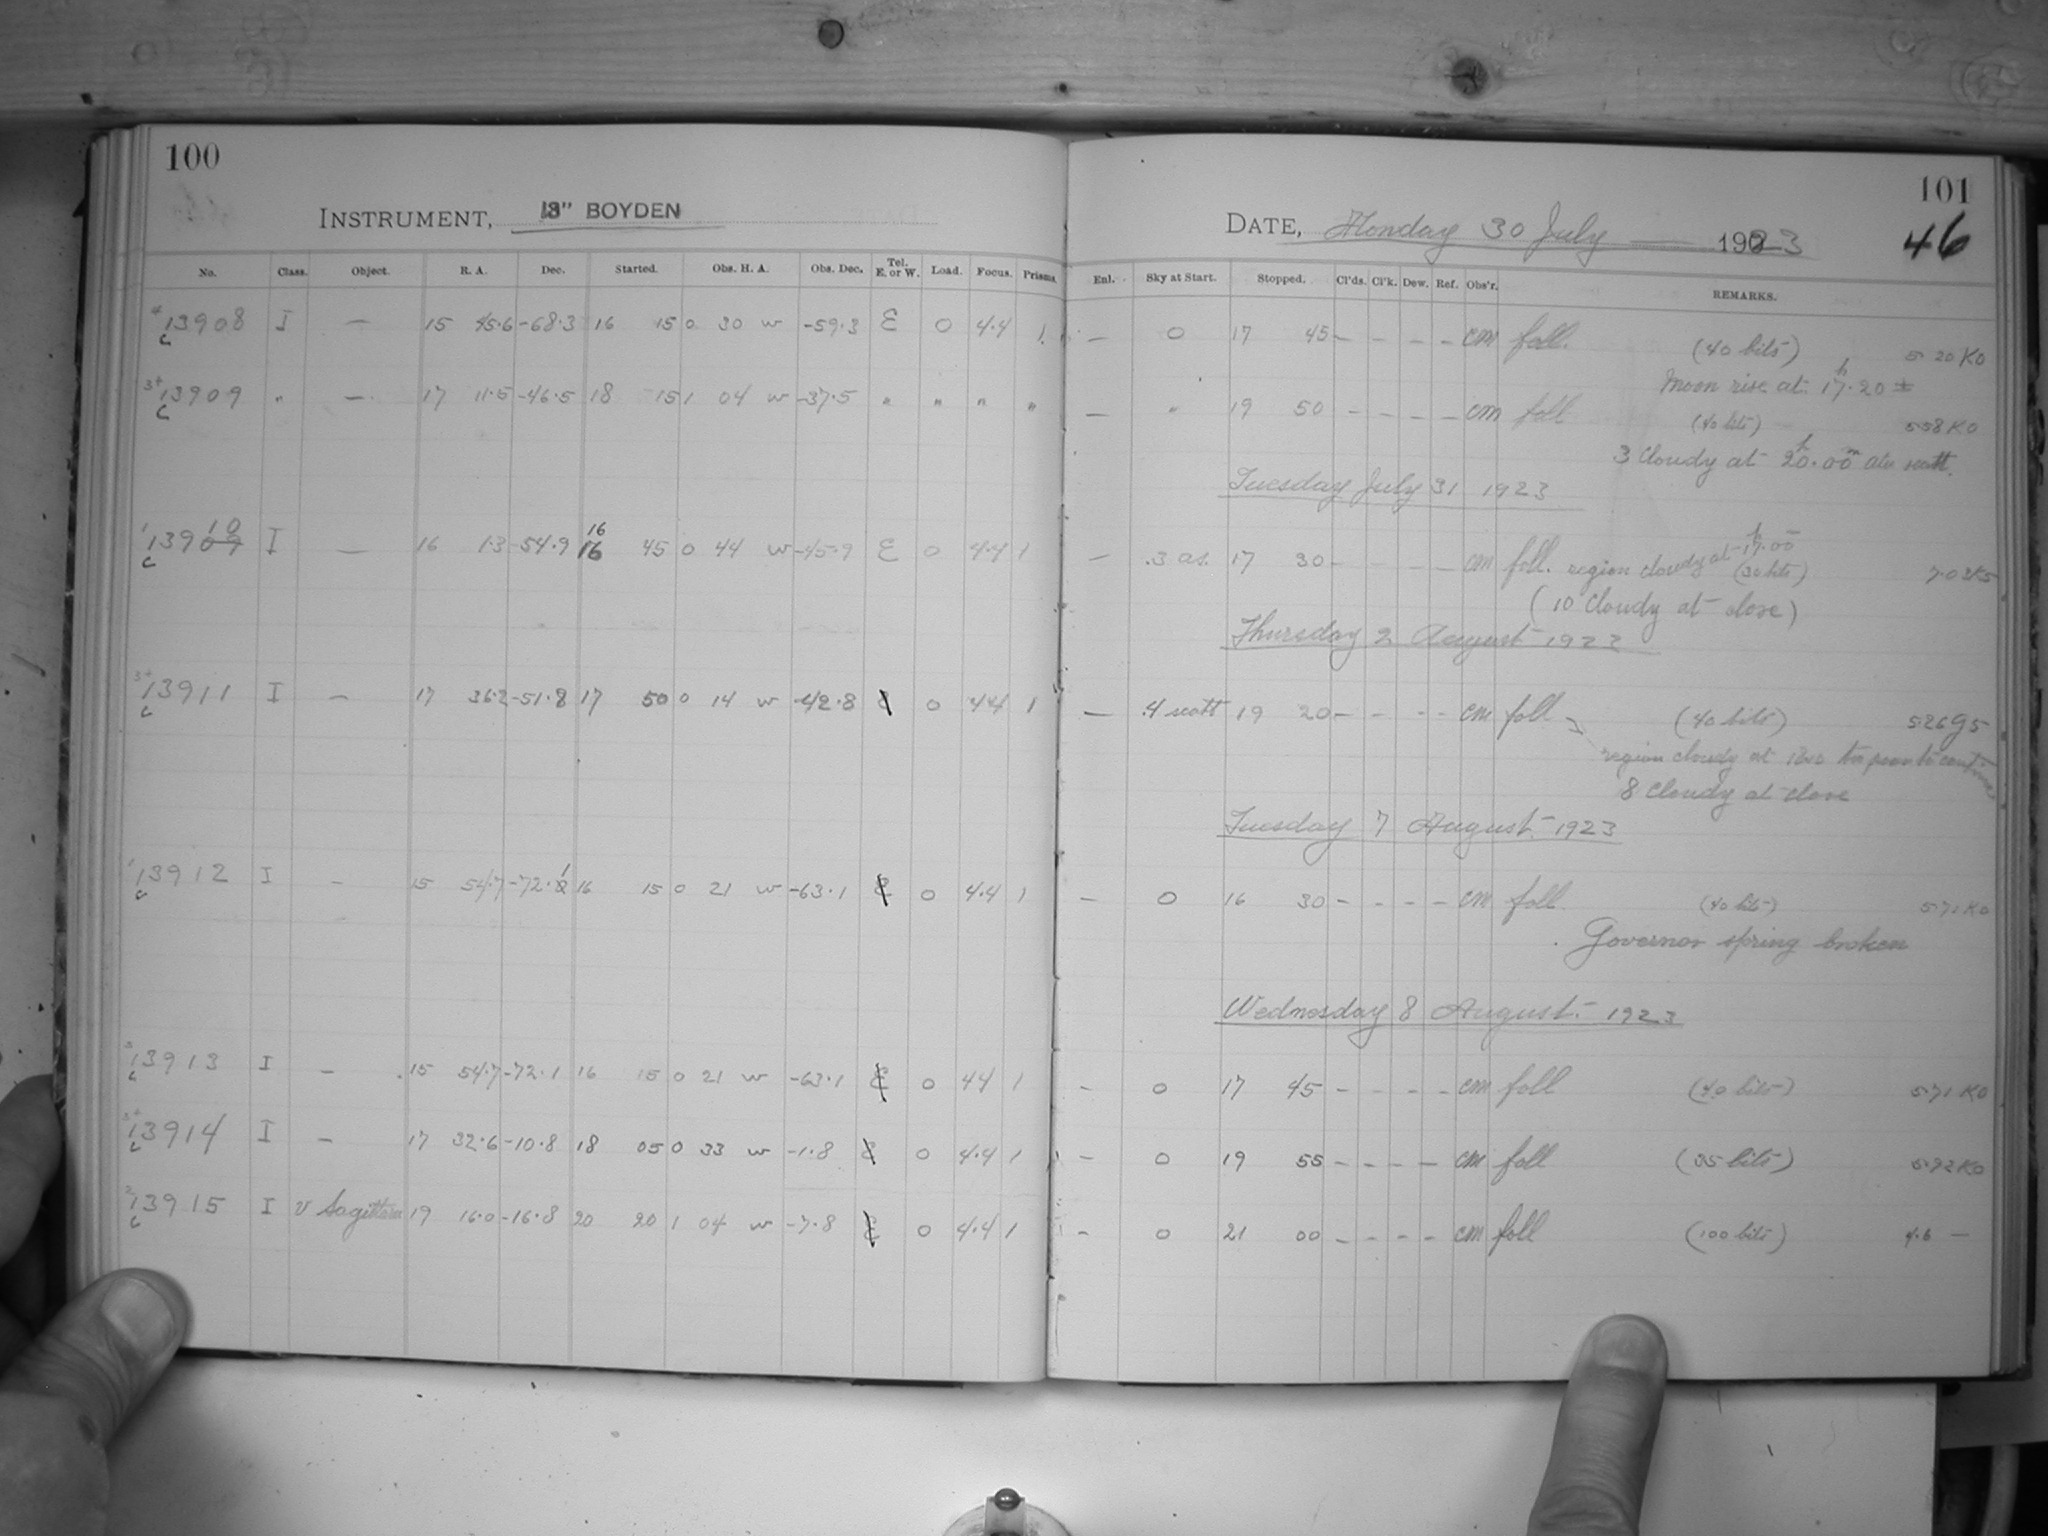 100
INSTRUMENT, 13" BOYDEN
No. Class. Object. R. A. Dec. Started. Obs. H. A. Obs. Dec. Tel. E. or W. Load. Focus. Prisms.
4 13908 I — 15 45.6 -68.3 16 15 0 30 w -59.3 E 0 4.4 1
c
3+ 13909 " — 17 11.5 -46.5 18 15 1 04 w -37.5 " " " "
c
16
1 13910 I — 16 1.3 -54.9 16 45 0 44 w -45.9 E 0 4.4 1
c
3+ 13911 I — 17 36.2 -51.8 17 50 0 14 w -42.8 E 0 4.4 1
c
1 13912 I — 15 54.7 -72.1 16 15 0 21 w -63.1 E 0 4.4 1
c
3 13913 I — 15 54.7 -72.1 16 15 0 21 w -63.1 E 0 44 1
c
3+ 13914 I — 17 32.6 -10.8 18 05 0 33 w -1.8 E 0 4.4 1
c
2 13915 I v Sagittarii 19 16.0 -16.8 20 20 1 04 w -7.8 E 0 4.4 1
c
101
DATE, Monday 30 July 1923
46
Enl. Sky at Start. Stopped. Cl'ds. Cl'k. Dew. Ref. Obs'r. REMARKS.
— 0 17 45 — — — — cm foll. (40 bits) 5.20 K0
Moon rise at 17h.20 ±
— " 19 50 — — — — cm foll (40 bits) 5.58 K0
3 Cloudy at 20h.00m alu scatt.
Tuesday July 31 1923
— .3 as. 17 30 — — — — cm foll. region cloudy at 17h.00 (30 bits) 7.0 K5
(10 Cloudy at close)
Thursday 2 August 1923
— .4 scatt 19 20 — — — — cm foll (40 bits) 5.26 G5
region cloudy at
8 Cloudy at close
Tuesday 7 August 1923
— 0 16 30 — — — — cm foll. (40 bits) 5.71 K0
Governor spring broken
Wednesday 8 August 1923
— 0 17 45 — — — — cm foll (40 bits) 5.71 K0
— 0 19 55 — — — — cm foll (35 bits) 5.92 K0
— 0 21 00 — — — — cm foll (100 bits) 4.6 —